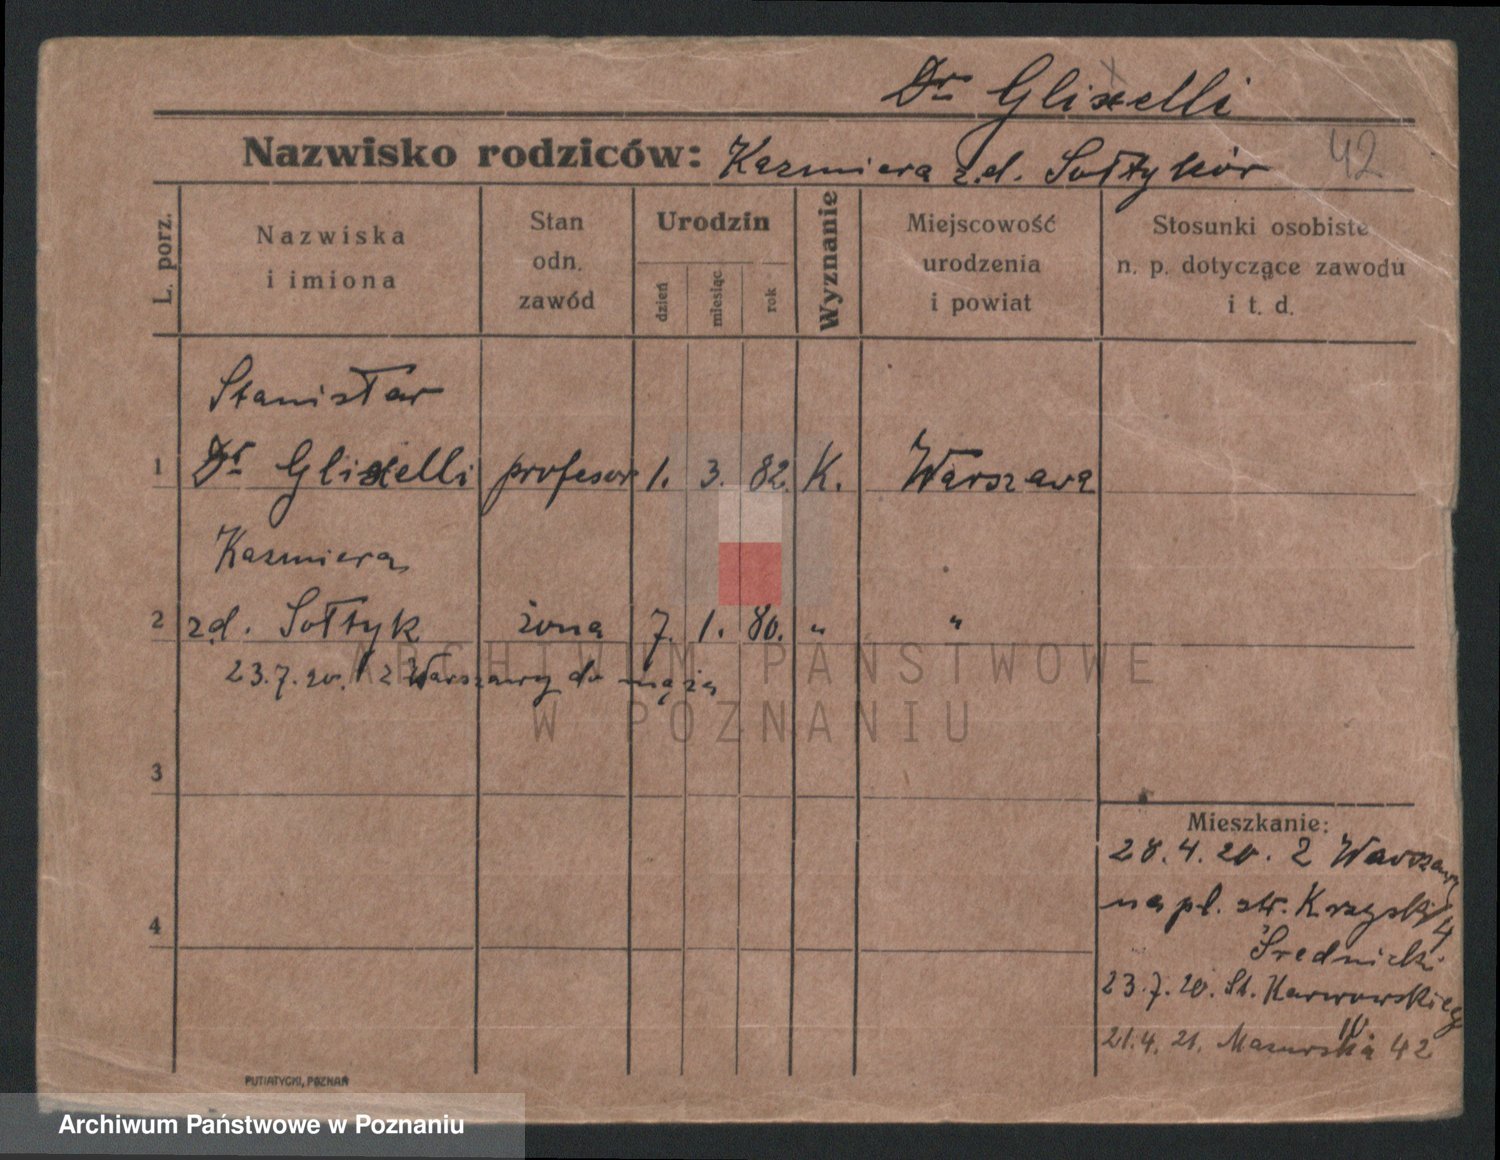 Dr Glixelli
Nazwisko rodziców: Kazmiera z.d. Sołtyków 42
L. porz.
Nazwiska
i imiona
Stan
odn.
zawód
Urodzin
dzień
miesiąc
rok
Wyznanie
Miejscowość
urodzenia
i powiat
Stosunki osobiste
n. p. dotyczące zawodu
i t. d.
Stanisław
1 Dr Glixelli profesor 1. 3. 82. K. Warszawa
Kazmiera
2 z.d. Sołtyk żona 7. 1. 80. " "
23.7.20. z Warszawy do męża
ARCHIWUM PAŃSTWOWE
W POZNANIU
3
4
Mieszkanie:
28.4.20. z Warszawy
na pl. str.
Średnicki
23.7.20. St. Karwowskiego
10.
21.4.21. Mazurska 42
PUTIATYCKI, POZNAŃ
Archiwum Państwowe w Poznaniu